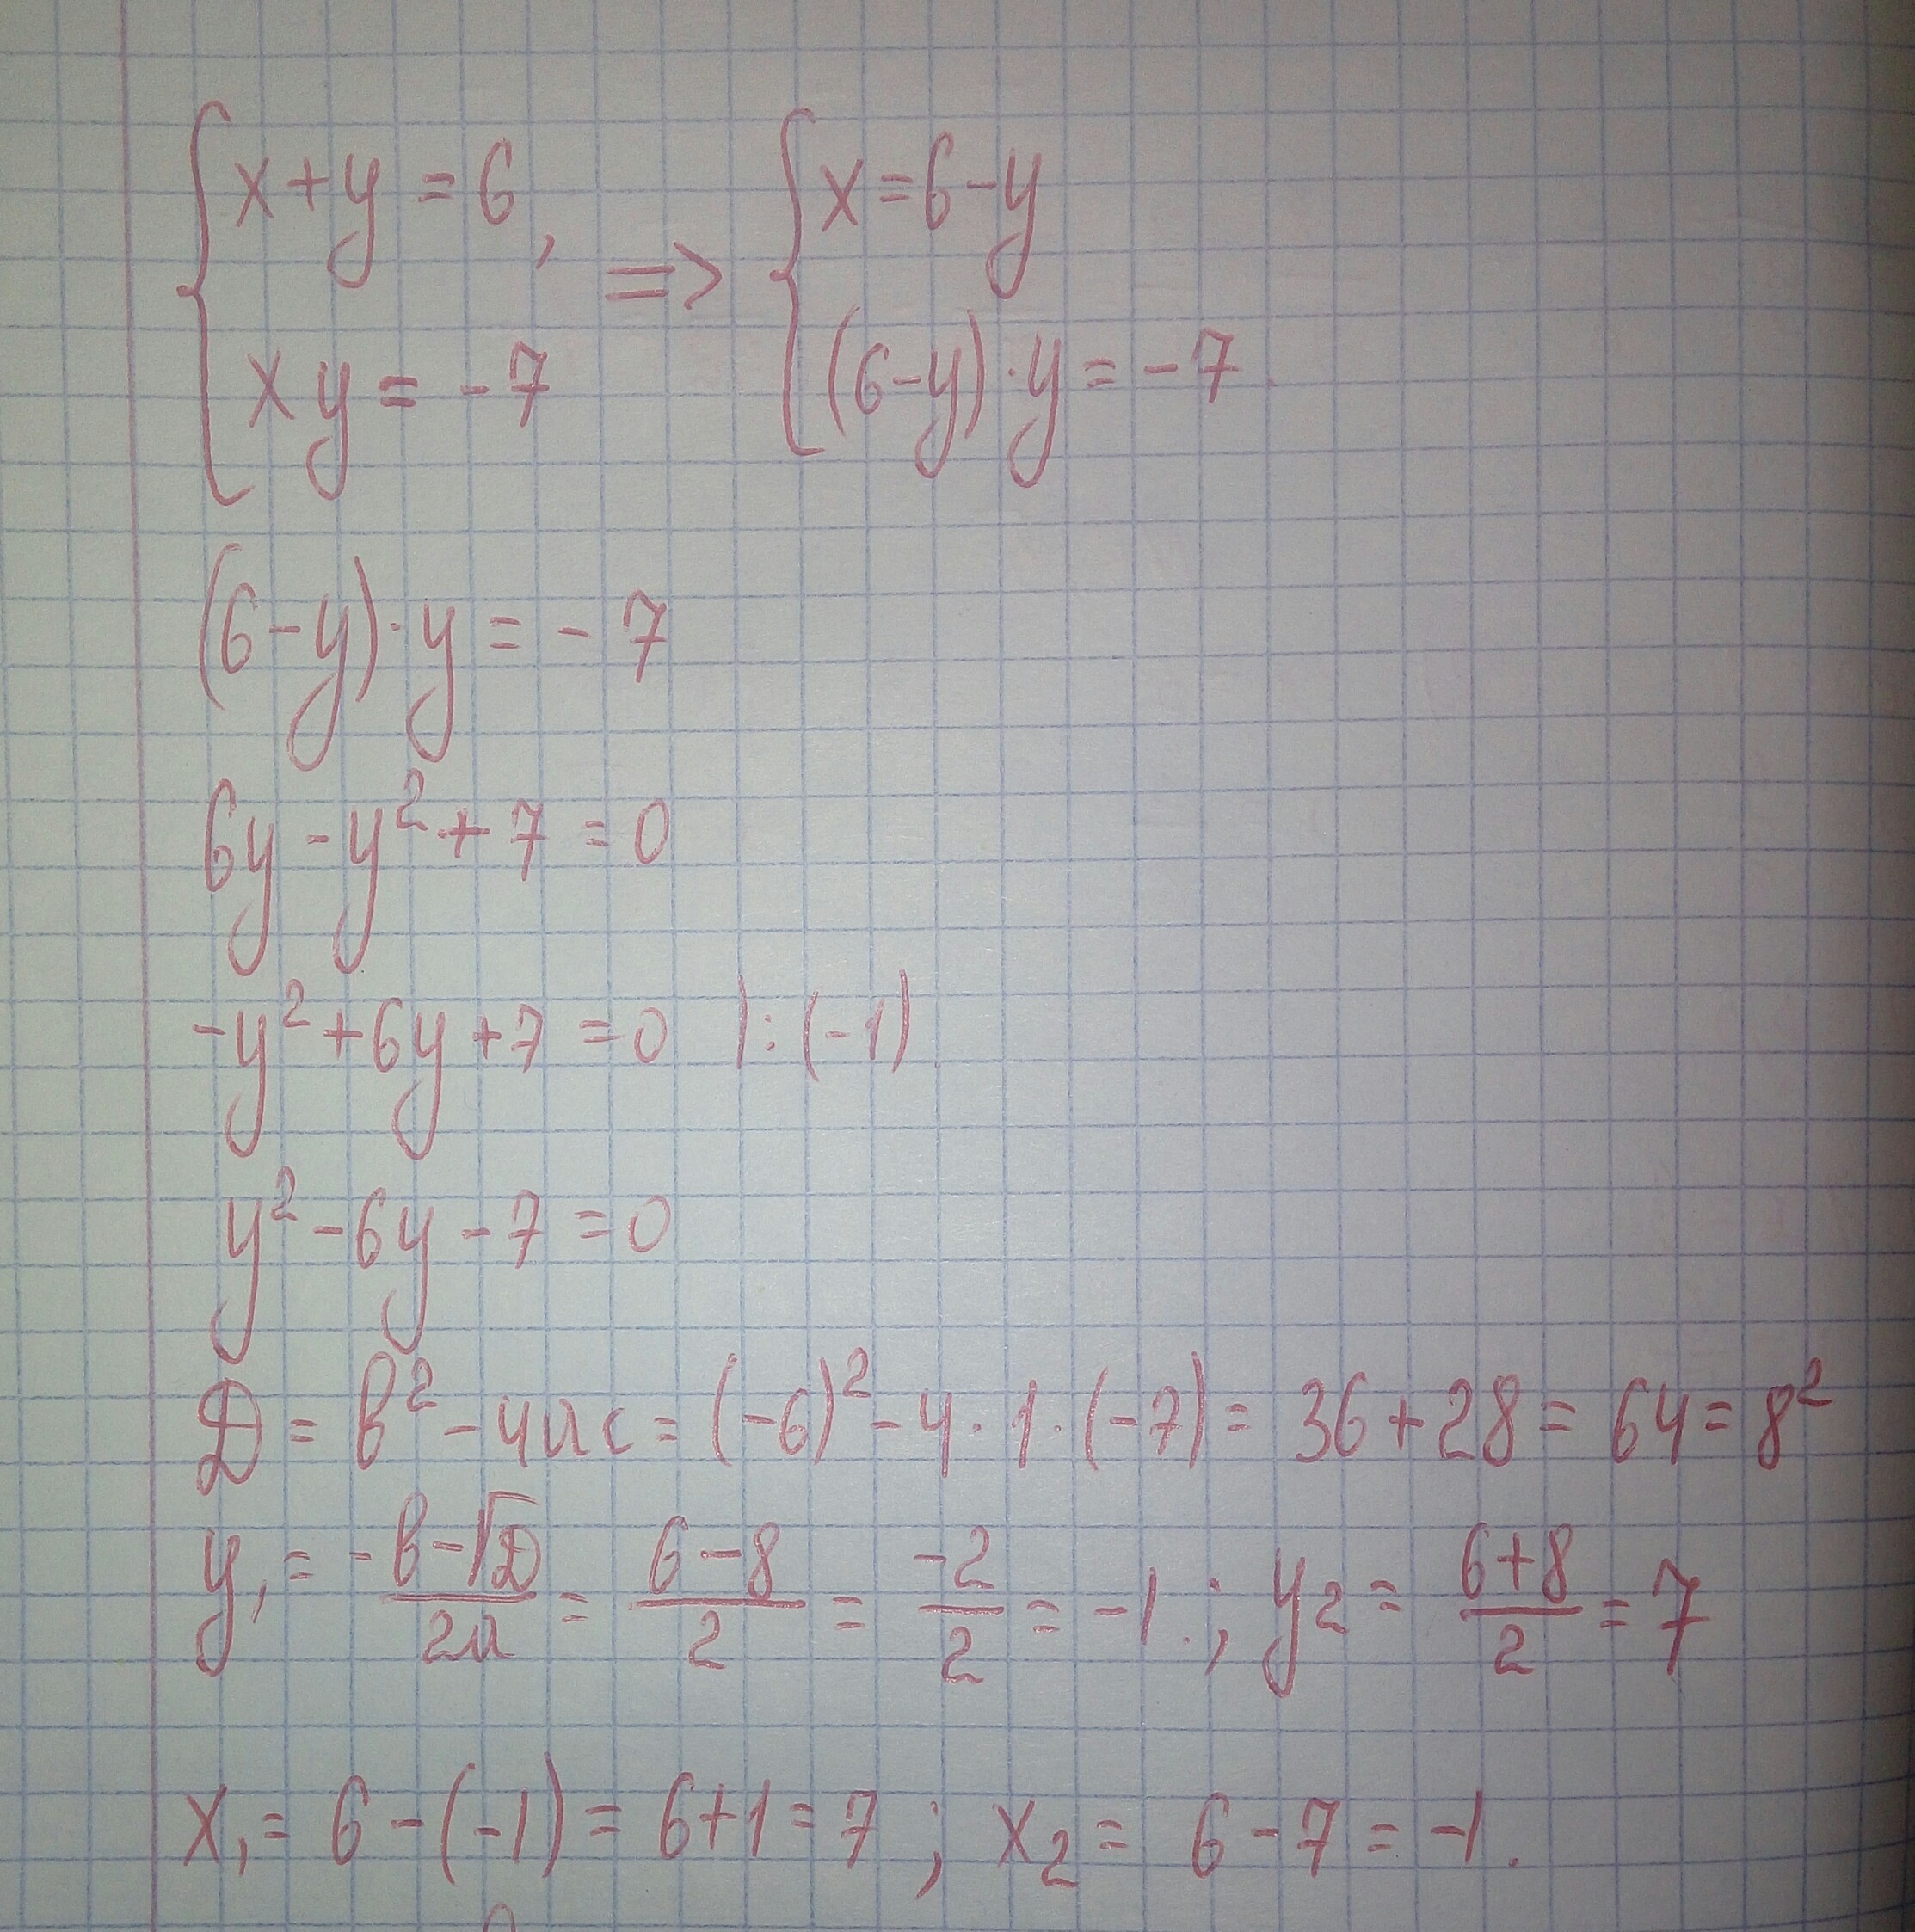 { x + y = 6, => { x = 6 - y
{ xy = -7 { (6 - y) · y = -7
(6 - y) · y = - 7
6y - y² + 7 = 0
-y² + 6y + 7 = 0 | : (-1)
y² - 6y - 7 = 0
Д = в² - 4ас = (-6)² - 4 · 1 · (-7) = 36 + 28 = 64 = 8²
y₁ = (-в - √Д)/2а = (6 - 8)/2 = -2/2 = -1. ; y₂ = (6 + 8)/2 = 7
x₁ = 6 - (-1) = 6 + 1 = 7 ; x₂ = 6 - 7 = -1.